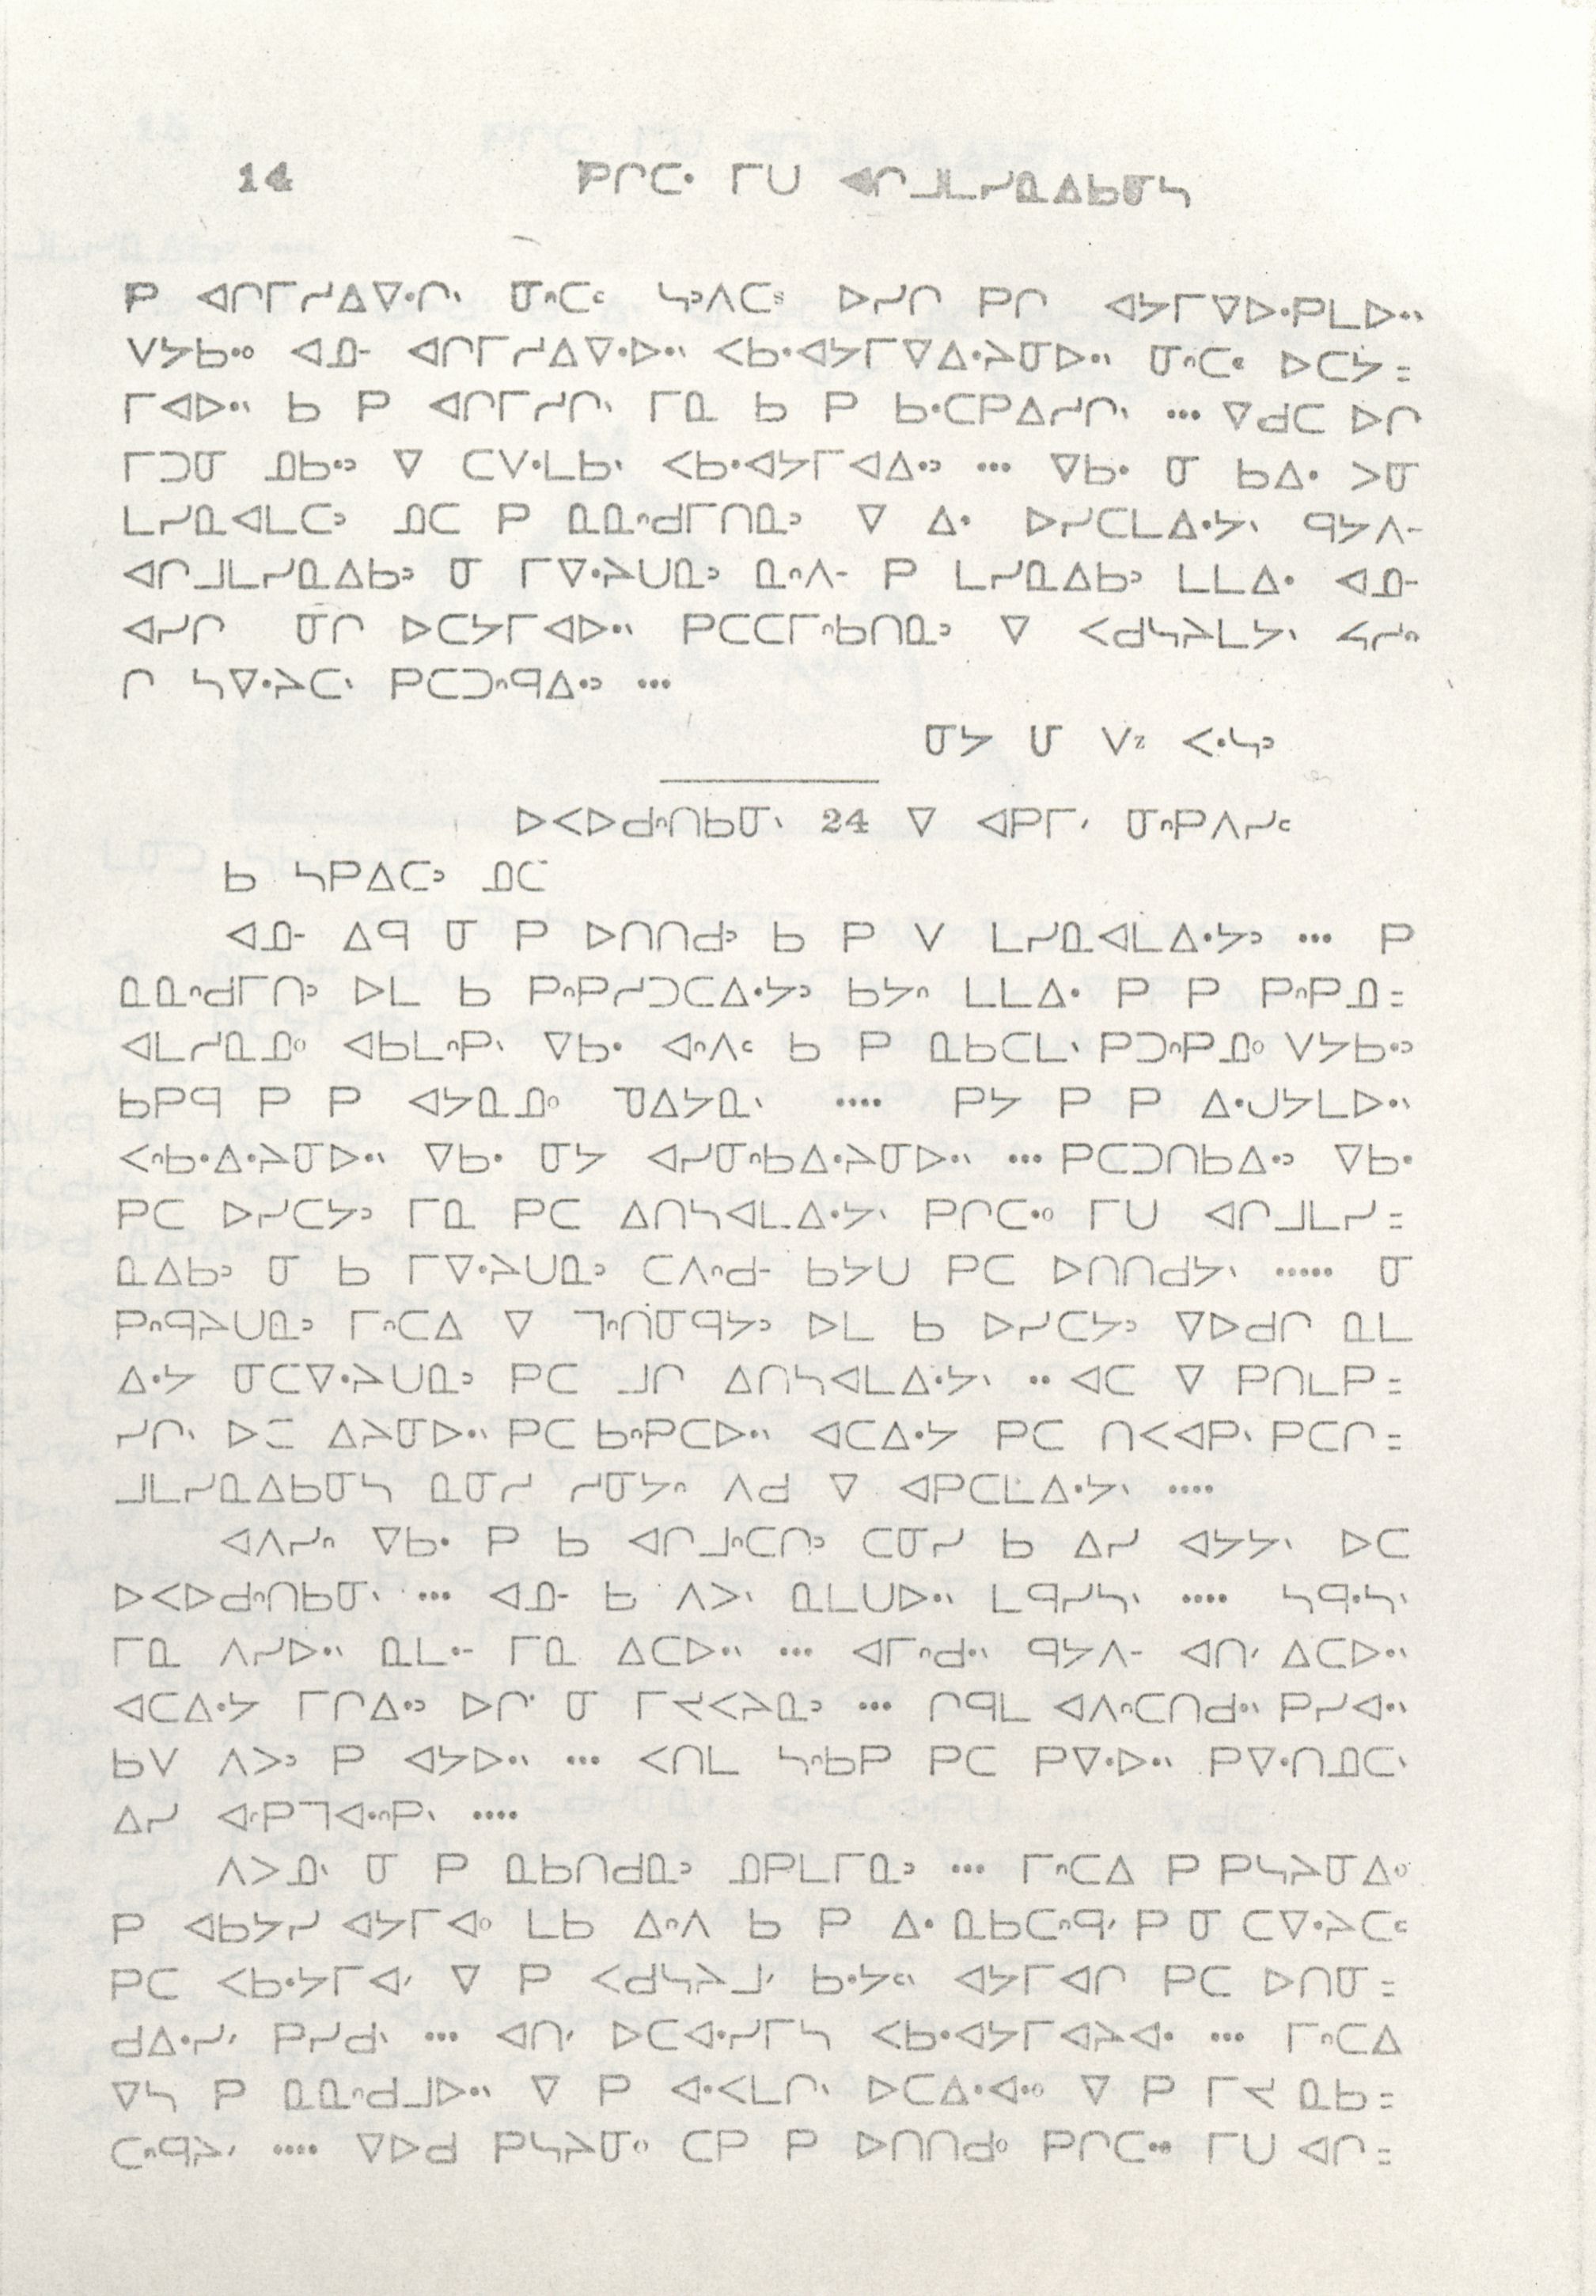 14 ᑭᒋᑕᐧ ᒥᑌ ᐊᒋᒧᒪᓯᓇᐃᑲᓂᓴ
ᑭ ᐊᒋᒥᓯᐃᐍᒋᐠ ᓂᐢᑕᑦ ᓴᐣᐱᑕᔆ ᐅᓯᒋ ᑭᒋ ᐊᔭᒥᐁᐅᐧᑭᒪᐅᐧᐠ
ᐯᔭᑲᐧᐤ ᐊᓄᐨ ᐊᒋᒥᓯᐃᐁᐧᐅᐧᐠ ᐸᑲᐧᐊᔭᒥᐁᐃᐧᔨᓂᐅᐧᐠ ᓂᐢᑕᐧ ᐅᑕᔭ =
ᒥᐊᐅᐧᐠ ᑲ ᑭ ᐊᒋᒥᓯᒋᐠ ᒥᓇ ᑲ ᑭ ᑲᐧᑕᑭᐃᓯᒋᐠ ... ᐁᑯᑕ ᐅᒋ
ᒥᑐᓂ ᓄᑲᐧᐣ ᐁ ᑕᐯᐧᒪᑲᐠ ᐸᑲᐧᐊᔭᒥᐊᐃᐧᐣ ... ᐁᑲᐧ ᓂ ᑲᐃᐧ ᐳᓂ
ᒪᓯᓇᐊᒪᑕᐣ ᓄᑕ ᑭ ᓇᓇᐢᑯᒥᑎᓇᐣ ᐁ ᐃᐧ ᐅᓯᑕᒪᐃᐧᔭᐠ ᑫᔭᐱᐨ
ᐊᒋᒧᒪᓯᓇᐃᑲᐣ ᓂ ᒥᐁᐧᔨᑌᓇᐣ ᓇᐢᐱᐨ ᑭ ᒪᓯᓇᐃᑲᐣ ᒪᒪᐃᐧ ᐊᓄᐨ
ᐊᓯᒋ ᓂᒋ ᐅᑕᔭᒥᐊᐅᐧᐠ ᑭᑕᑕᒥᐢᑲᑎᓇᐣ ᐁ ᐸᑯᓴᔨᒪᔭᐠ ᓴᓯᐢ
ᒋ ᓴᐁᐧᔨᑕᐠ ᑭᑕᑐᐢᑫᐃᐧᐣ ...
ᓂᔭ ᓂ ᐯᙆ ᐸᐧᓴᐣ
ᐅᐸᐅᑯᐢᑎᑲᓂᐠ 24 ᐁ ᐊᑭᒥᐟ ᓂᐢᑭᐱᓯᑦ
ᑲ ᓴᑭᐃᑕᐣ ᓄᑕ
ᐊᓄᐨ ᐃᑫ ᓂ ᑭ ᐅᑎᑎᑯᐣ ᑲ ᑭ ᐯ ᒪᓯᓇᐊᒪᐃᐧᔭᐣ ... ᑭ
ᓇᓇᐢᑯᒥᑎᐣ ᐅᒪ ᑲ ᑭᐢᑭᓯᑐᑕᐃᐧᔭᐣ ᑲᔭᐢ ᒪᒪᐃᐧ ᑭ ᑭ ᑭᐢᑭᓄ =
ᐊᒪᓯᓇᓄᐤ ᐊᑲᒪᐢᑭᐠ ᐁᑲᐧ ᐊᐢᐱᑦ ᑲ ᑭ ᓇᑲᑕᒪᐠ ᑭᑐᐢᑭᓄᐤ ᐯᔭᑲᐧᐣ
ᑲᑭᑫ ᑭ ᑭ ᐊᔭᓇᓄᐤ ᑫᐃᔭᓇᐠ .... ᑭᔭ ᑭ ᑭ ᐃᐧᒍᔭᒪᐅᐧᐠ
ᐸᐢᑲᐧᐃᐧᔨᓂᐅᐧᐠ ᐁᑲᐧ ᓂᔭ ᐊᓯᓂᐢᑲᐃᐧᔨᓂᐅᐧᐠ ... ᑭᑕᑐᑎᑲᐃᐧᐣ ᐁᑲᐧ
ᑭᑕ ᐅᓯᑕᔭᐣ ᒥᓇ ᑭᑕ ᐃᑎᓴᐊᒪᐃᐧᔭᐠ ᑭᒋᑕᐧᐤ ᒥᑌ ᐊᒋᒧᒪᓯ =
ᓇᐃᑲᐣ ᓂ ᑲ ᒥᐁᐧᔨᑌᓇᐣ ᑕᐱᐢᑯᐨ ᑲᔭᑌ ᑭᑕ ᐅᑎᑎᑯᔭᐠ ..... ᓂ
ᑭᐢᑫᔨᑌᓇᐣ ᒥᐢᑕᐃ ᐁ ᒣᐢᑎᓂᑫᔭᐣ ᐅᒪ ᑲ ᐅᓯᑕᔭᐣ ᐁᐅᑯᒋ ᓇᒪ
ᐃᐧᔭ ᓂᑕᐁᐧᔨᑌᓇᐣ ᑭᑕ ᒧᒋ ᐃᑎᓴᐊᒪᐃᐧᔭᐠ .. ᐊᑕ ᐁ ᑭᑎᒪᑭ =
ᓯᒋᐠ ᐅᑕ ᐃᔨᓂᐅᐧᐠ ᑭᑕ ᑲᐢᑭᑕᐅᐧᐠ ᐊᑕᐃᐧᔭ ᑭᑕ ᑎᐸᐊᑭᐠ ᑭᑕᒋ =
ᒧᒪᓯᓇᐃᑲᓂᓴ ᓇᓂᓯ ᓯᓂᔭᐢ ᐱᑯ ᐁ ᐊᑭᑕᒪᐃᐧᔭᐠ ....
ᐊᐱᓯᐢ ᐁᑲᐧ ᑭ ᑲ ᐊᒋᒧᐢᑕᑎᐣ ᑕᓂᓯ ᑲ ᐃᓯ ᐊᔭᔭᐠ ᐅᑕ
ᐅᐸᐅᑯᐢᑎᑲᓂᐠ ... ᐊᓄᐨ ᑲ ᐱᐳᐠ ᓇᒪᑌᐅᐧᐠ ᒪᑫᓯᓴᐠ .... ᓴᑫᐧᓴᐠ
ᒥᓇ ᐱᓯᐅᐧᐠ ᓇᒪᐧᐨ ᒥᓇ ᐃᑕᐅᐧᐠ ... ᐊᒥᐢᑯᐧᐠ ᑫᔭᐱᐨ ᐊᑎᐟ ᐃᑕᐅᐧᐠ
ᐊᑕᐃᐧᔭ ᒥᒋᐃᐧᐣ ᐅᒋ ᓂ ᒥᔪᐸᔨᓇᐣ ... ᒋᑫᒪ ᐊᐱᐢᑕᑎᑯᐧᐠ ᑭᓯᐊᐧᐠ
ᑲᐯ ᐱᐳᐣ ᑭ ᐊᔭᐅᐧᐠ ... ᐸᑎᒪ ᓴᐢᑲᑭ ᑭᑕ ᑭᐁᐧᐅᐧᐠ ᑭᐁᐧᑎᓄᑕᐠ
ᐃᓯ ᐊᐟᑭᒣᐊᐧᐢᑭᐠ ....
ᐱᐳᓄᐠ ᓂ ᑭ ᓇᑲᑎᑯᓇᐣ ᓄᑭᒪᒥᓇᐣ ... ᒥᐢᑕᐃ ᑭ ᑭᓴᔨᓂᐃᐤ
ᑭ ᐊᑲᔭᓯ ᐊᔭᒥᐊᐤ ᒪᑲ ᐃᐢᐱ ᑲ ᑭ ᐃᐧ ᓇᑲᑕᐢᑫᐟ ᑭ ᓂ ᑕᐁᐧᔨᑕᑦ
ᑭᑕ ᐸᑲᐧᔭᒥᐊᐟ ᐁ ᑭ ᐸᑯᓴᔨᒧᐟ ᑲᐧᔭᐢᐠ ᐊᔭᒥᐊᒋ ᑭᑕ ᐅᑎᓂ =
ᑯᐃᐧᓯᐟ ᑭᓯᑯᐠ ... ᐊᑎᐟ ᐅᑕᐊᐧᓯᒥᓴ ᐸᑲᐧᐊᔭᒥᐊᔨᐊᐧ ... ᒥᐢᑕᐃ
ᐁᓴ ᑭ ᓇᓇᐢᑯᒧᐅᐧᐠ ᐁ ᑭ ᐊᐧᐸᒪᒋᐠ ᐅᑕᐃᐧᐊᐧᐤ ᐁ ᑭ ᒥᔪ ᓇᑲ =
ᑕᐢᑫᔨᐟ .... ᐁᐅᑯ ᑭᓴᔨᓂᐤ ᑕᑭ ᑭ ᐅᑎᑎᑯᐤ ᑭᒋᑕᐧᐤ ᒥᑌ ᐊᒋ =